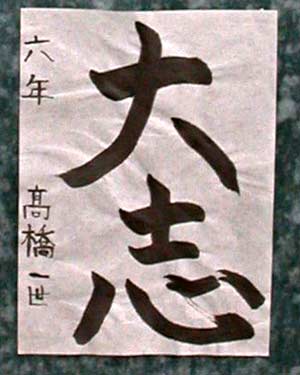 大志
六年 髙橋一世